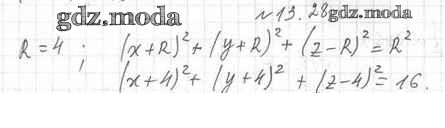 gdz.moda
№13.28 gdz.moda
R = 4 ; (x+R)²+(y+R)²+(z-R)²=R²
(x+4)²+(y+4)²+(z-4)²=16.